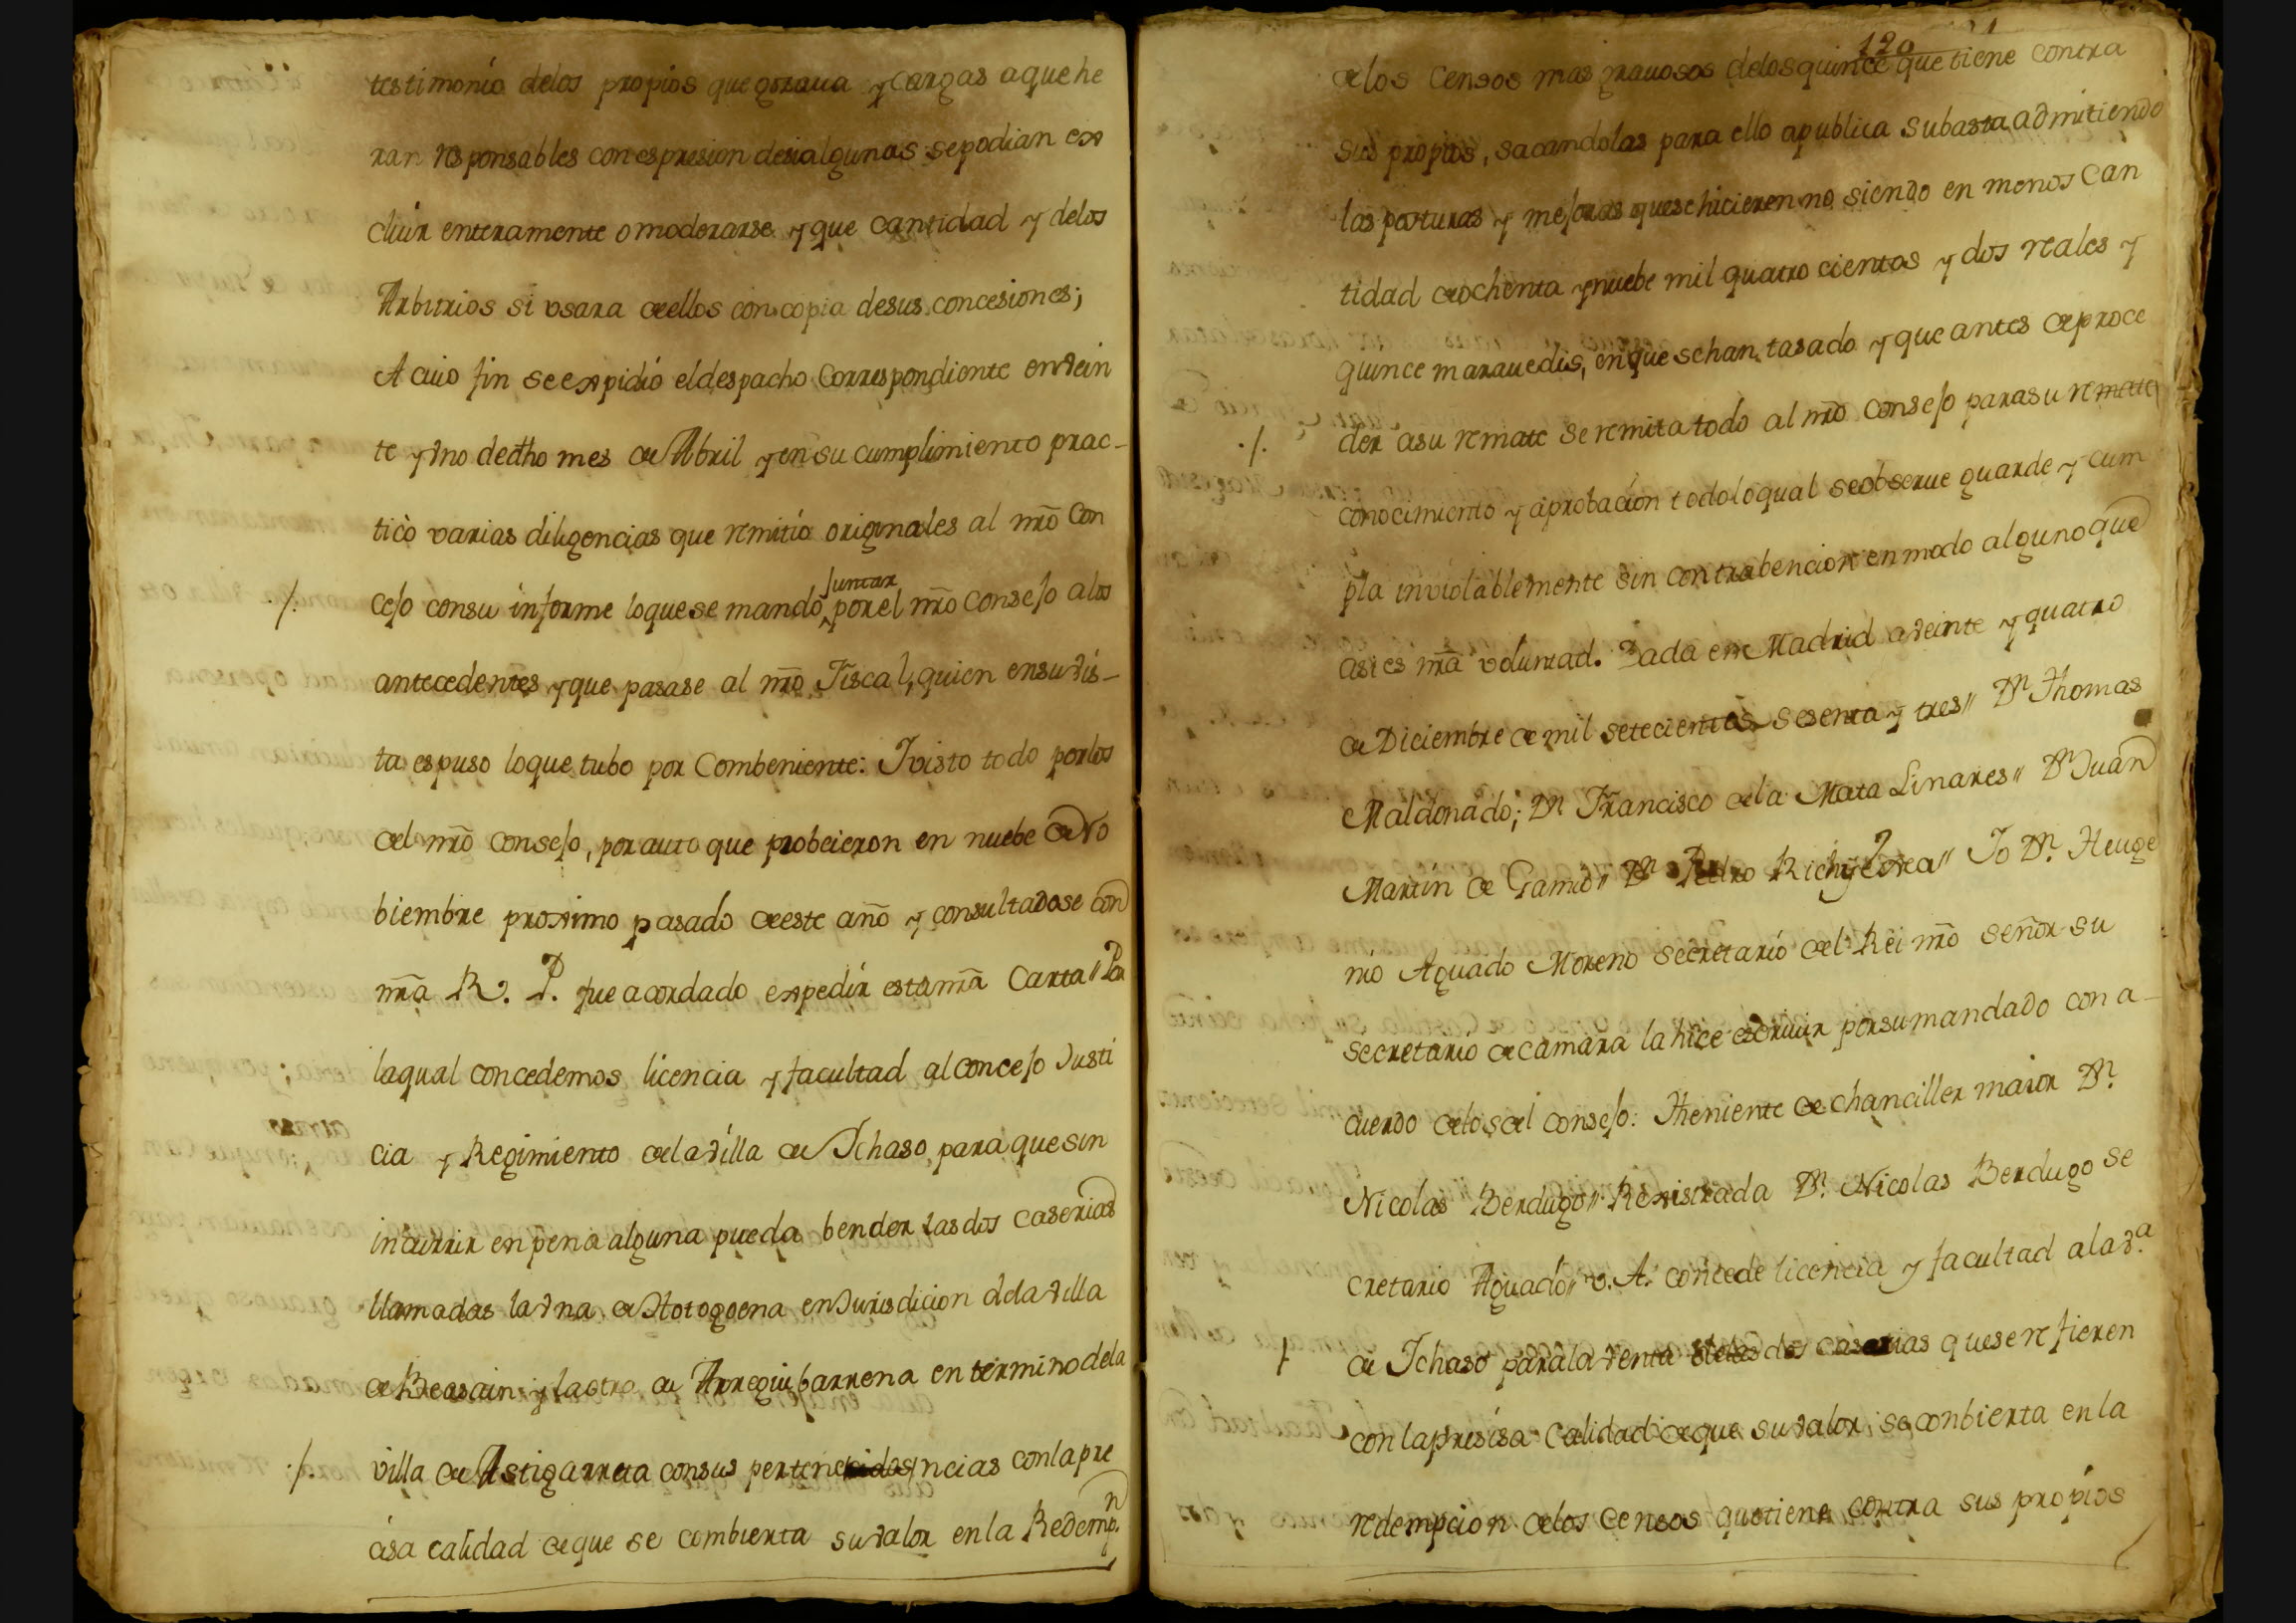 testimonio delos propios que gozaua y cargas aque he
ran responsables con espresion desialgunas sepodian ex
cluir enteramente o moderarse y que cantidad y delos
Arbitrios si vsara de ellos con copia desus concesiones;
A cuio fin se expidió eldespacho Correspondiente en vein
te y vno de dho mes de Abril y en su cumplimiento prac-
ticò varias diligencias que remitió originales al nrõ Con
cejo consu informe loque se mandó juntar por el nrõ consejo alos
antecedentes y que pasase al nrõ Fiscal, quien en su vis-
ta espuso loque tubo por Combeniente: I visto todo por los
del nrõ consejo, por auto que probeieron en nuebe de No
biembre proximo pasado de este año y consultadose con
nrã R. P. fue acordado expedir esta nrã Carta // Por
laqual concedemos licencia y facultad al concejo Justi
cia y Regimiento dela villa de Ichaso, para que sin
incurrir en pena alguna pueda bender las dos caserias
llamadas la vna de Hotogoena en Jurisdicion dela villa
de Beasain y la otra de Arreguibarrena en termino dela
villa de Astigarreta consus pertenecidos ncias con la pre
cisa calidad de que se combierta su valor en la Redempn.
120
de los Censos mas grauosos delos quince que tiene contra
sus propios, sacandolas para ello apublica subasta admitiendo
las posturas y mejoras que se hicieren no siendo en menos Can
tidad de ochenta y nuebe mil quatro cientos y dos reales y
quince marauedis, en que se han tasado y que antes de proce
der asu remate se remita todo al nrõ consejo para su remate
conocimiento y aprobación todo lo qual se obserue guarde y cum
pla inviolablemente sin contrabencion en modo alguno que
asi es nrã voluntad. Dada en Madrid a veinte y quatro
de Diciembre de mil setecientos sesenta y tres // Dn Thomas
Maldonado; Dn Francisco dela Mata Linares // Dn Juan
Martin de Gamio // Dn Pedro Ric y Exea // Io Dn. Heuge
nio Aguado Moreno secretario del Rei nrõ señor su
secretario de camara la hice escriuir por su mandado con a-
cuerdo delos del consejo: Theniente de chanciller maior Dn.
Nicolas Berdugo // Rexistrada Dn. Nicolas Berdugo se
cretario Aguado // v. A. concede licencia y facultad ala va.
de Ichaso para la venta delas dos caserias que se refieren
con la presisa Calidad de que su valor se conbierta en la
redempcion delos censos que tiene contra sus propios